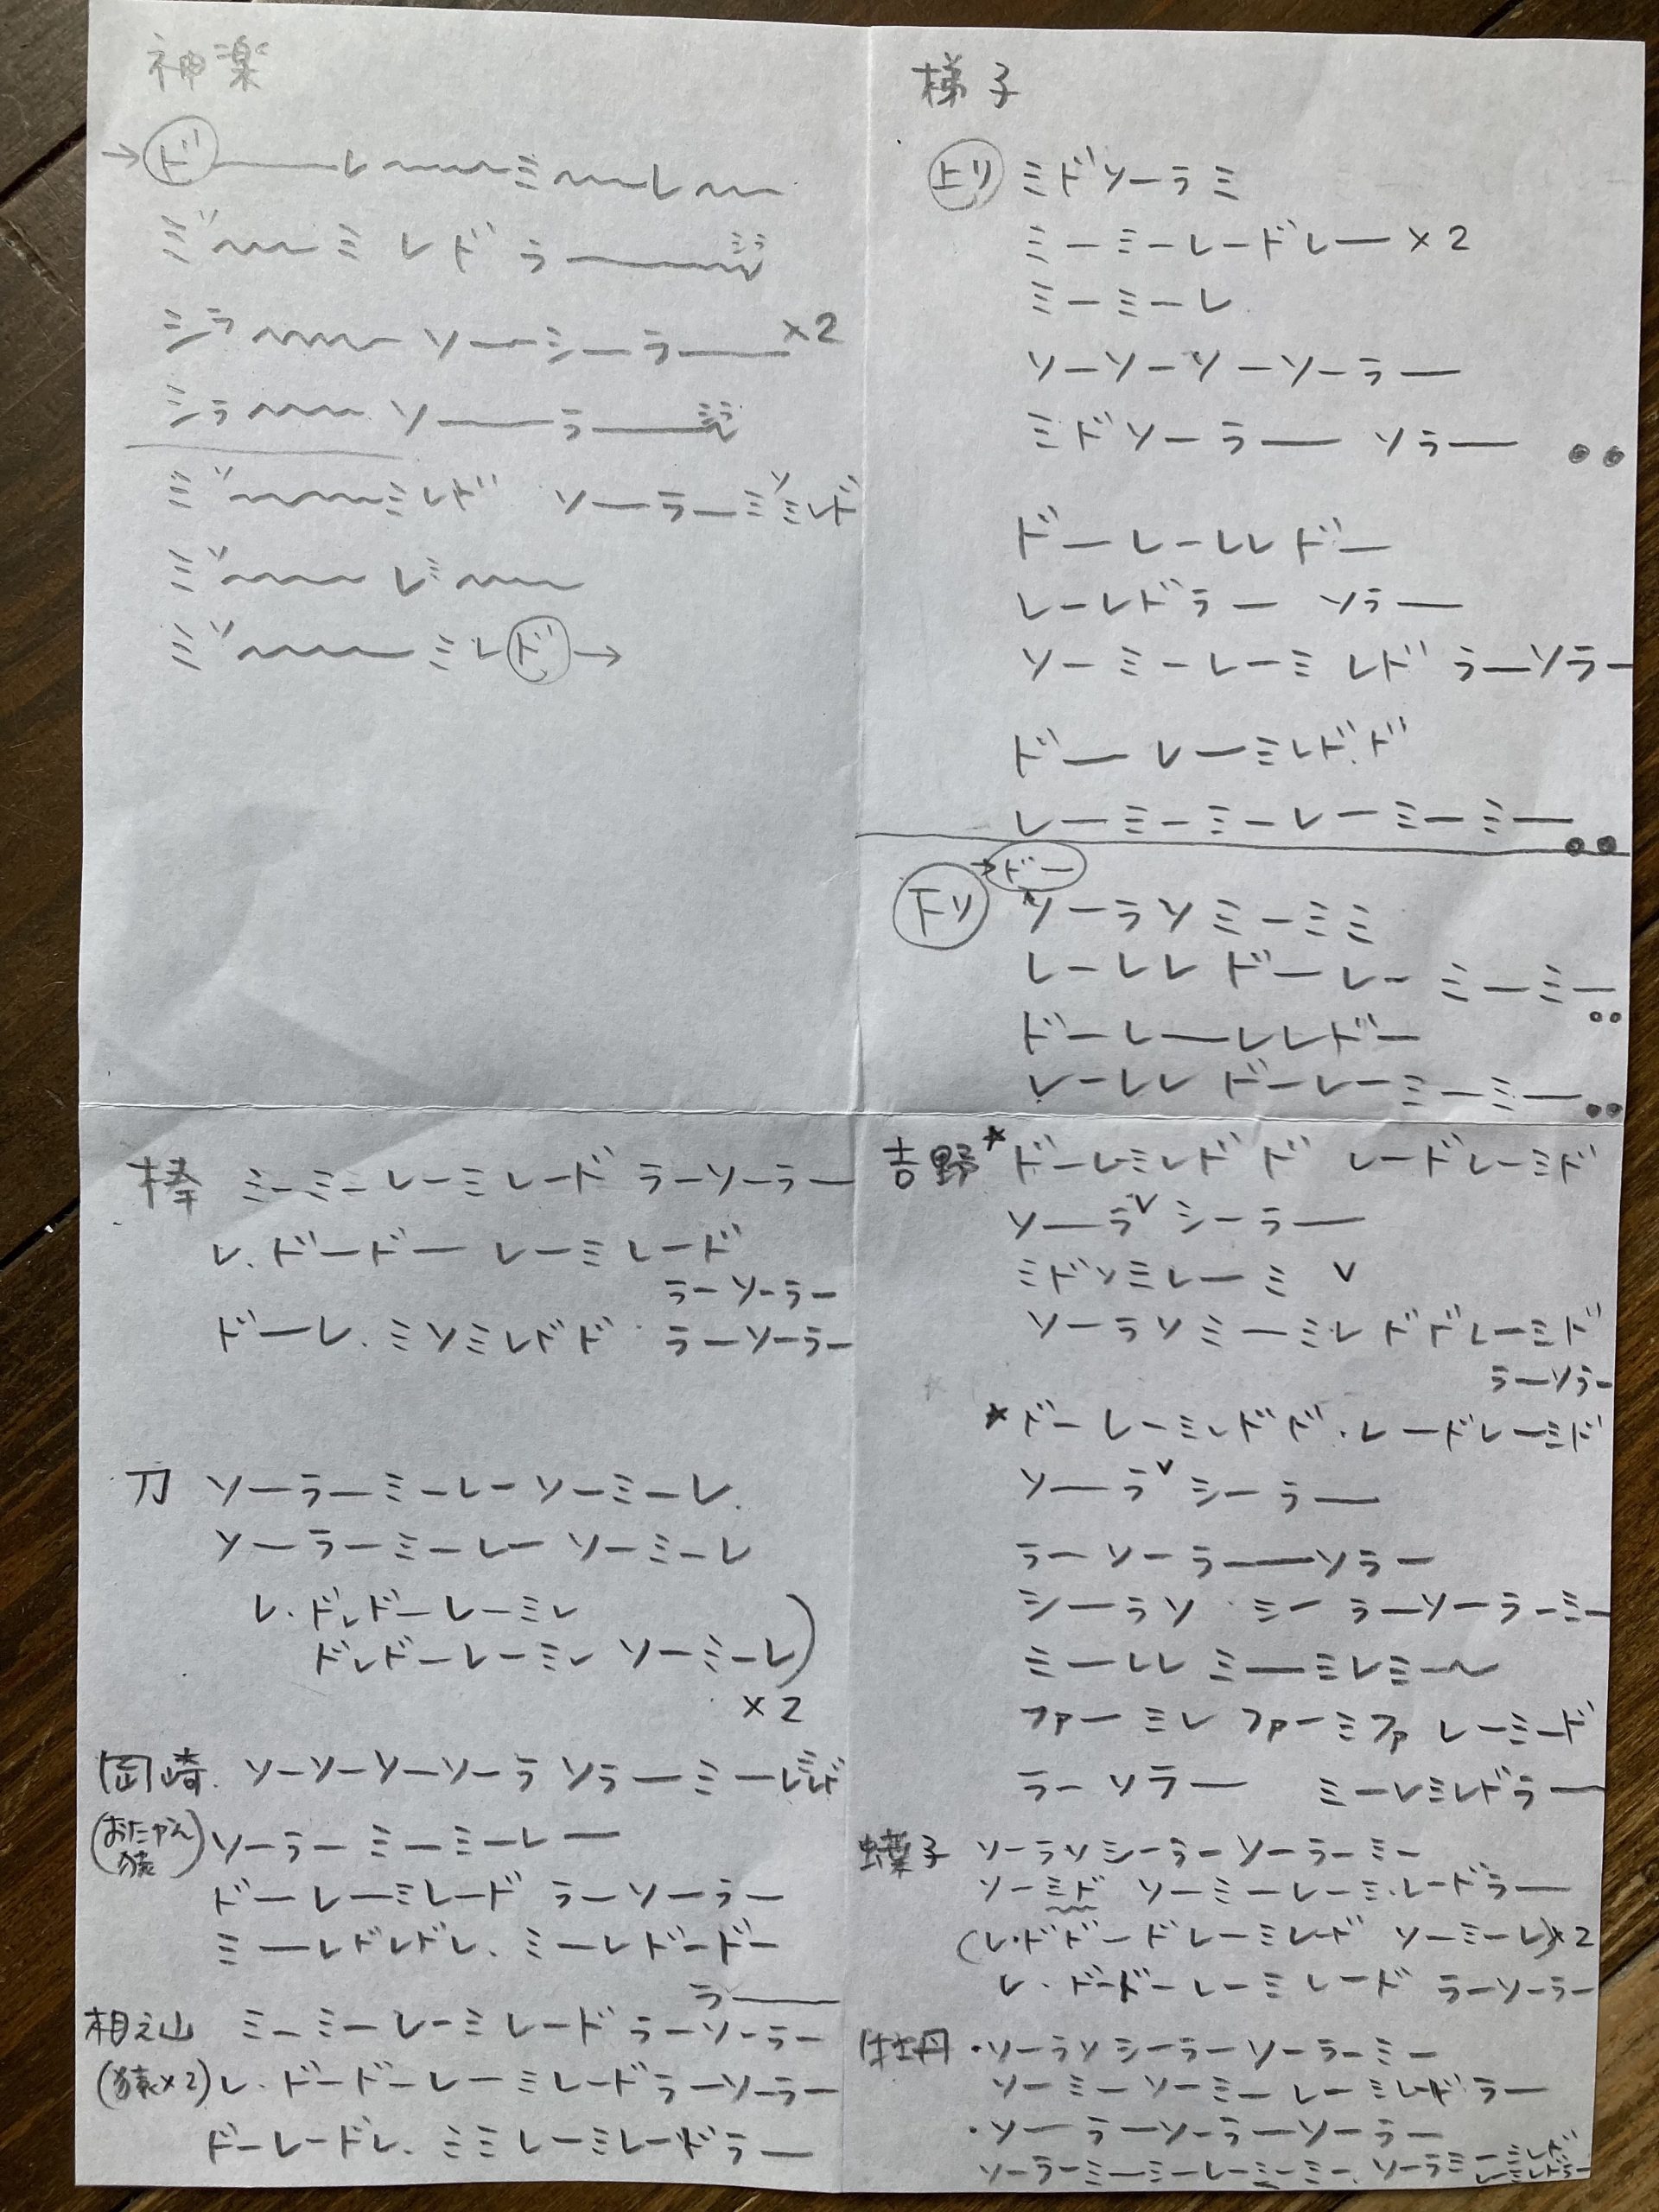 神楽
→ド——レ〜〜〜ミ〜〜レ〜〜
ミソ〜〜ミレドラ———ミラ
シラ〜〜〜ソーシーラ——×2
シラ〜〜〜ソ——ラ——ミラ
ミソ〜〜〜ミレド ソーラーミソミレド
ミソ〜〜〜レミ〜〜
ミソ〜〜〜ミレド→
梯子
上リ ミドソーラミ
ミーミーレードレー×2
ミーミーレ
ソーソーソーソーラー
ミドソーラー ソラー ●●
ドーレーレレドー
レーレドラー ソラー
ソーミーレーミレドラーソラー
ドーレーミレドド
レーミーミーレーミーミー ●●
→ドー
下リ ソーラソミーミミ
レーレレドーレーミーミー
○○
ドーレーレレドー
レーレレドーレーミーミー●●
棒 ミーミーレーミレードラーソーラー
レ.ドードーレーミレード
ラーソーラー
ドーレ.ミソミレドド ラーソーラー
刀 ソーラーミーレーソーミーレ.
ソーラーミーレーソーミーレ
レ.ドレドーレーミレ
ドレドーレーミレソーミーレ)
×2
岡崎.ソーソーソーソーラソラーミーレミレド
(おたやん猿)ソーラーミーミーレー
ドーレーミレードラーソーラー
ミーレドレドレ.ミーレドードー
ラ——
相之山 ミーミーレーミレードラーソーラー
(猿×2)レ.ドードーレーミレードラーソーラー
ドーレードレ.ミミレーミレードラー
吉野★ドーレミレドド レードレーミド
ソーラ∨シーラー
ミドソミレーミ ∨
ソーラソミーミレドドレーミド
ラーソラー
★ドーレーミレドド.レードレーミド
ソーラ∨シーラー
ラーソーラーソラー
シーラソ ミーラーソーラーミー
ミーレレミーミレミー〜
ファーミレファーミファレーミード
ラーソラー ミーレミレドラー
蝶子 ソーラソシーラーソーラーミー
ソーミド ソーミーレーミ.レードラー
(レ.ドドードレーミレード ソーミーレ)×2
レ.ドードーレーミレード ラーソーラー
牡丹 ・ソーラソシーラーソーラーミー
ソーミーソーミーレーミレードラー
・ソーラーソーラーソーラー
ソーラーミーミーレーミーミー.ソーラミーミレド
レーミレドラー